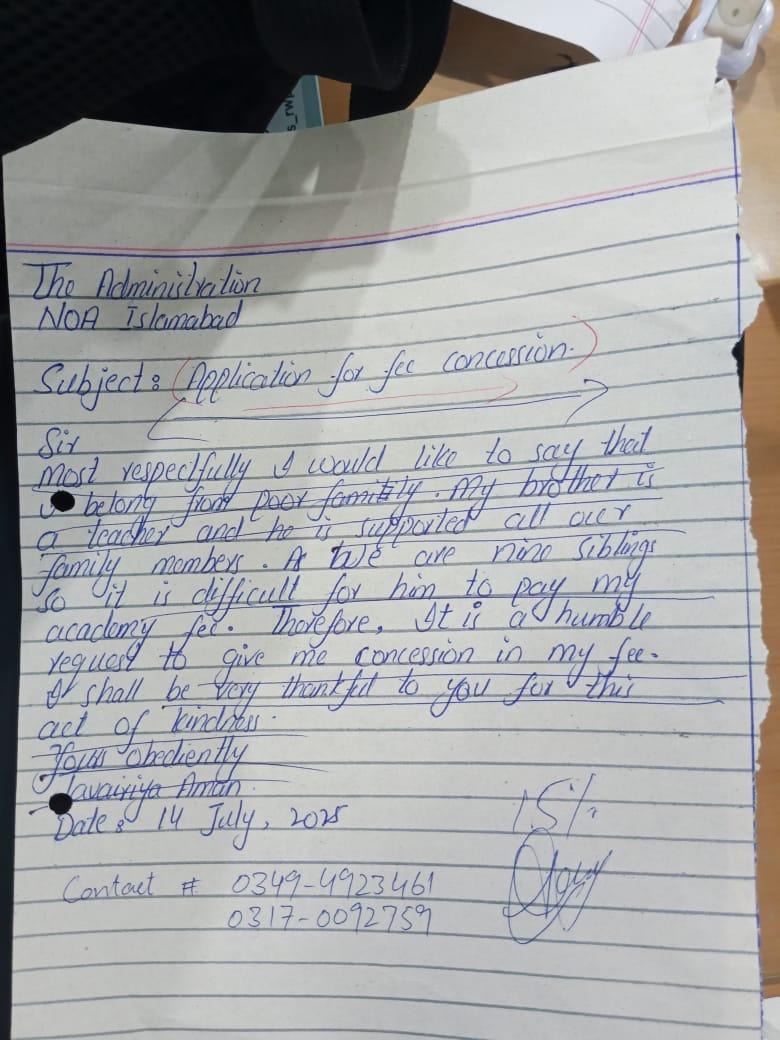 s_rwp
The Administration
NOA Islamabad
Subject: (Application for fee concession.)
Sir
Most respectfully I would like to say that
I belong from poor family. My brother is
a teacher and he is supported all our
family members. As We are nine siblings
so it is difficult for him to pay my
academy fee. Therefore, It is a humble
request to give me concession in my fee.
I shall be very thankful to you for this
act of kindness.
Yours obediently
Javairiya Aman
Date: 14 July, 2025
15%
Contact # 0349-4923461
0317-0092759